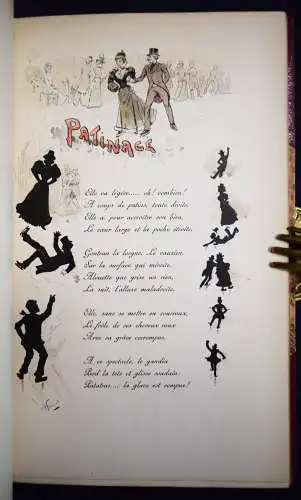 PATINAGE
Elle va légère.... oh! combien!
A coups de patins, toute droite,
Elle a, pour accroître son bien,
Le cœur large et la poche étroite.
Gontran la lorgne. Le vaurien,
Sur la surface qui miroite,
Alouette que grise un rien,
La suit, l'allure maladroite.
Elle, sans se mettre en courroux,
Le frôle de ses cheveux roux
Avec sa grâce corrompue.
A ce spectacle, le gandin
Perd la tête et glisse soudain:
Patatras... la glace est rompue!